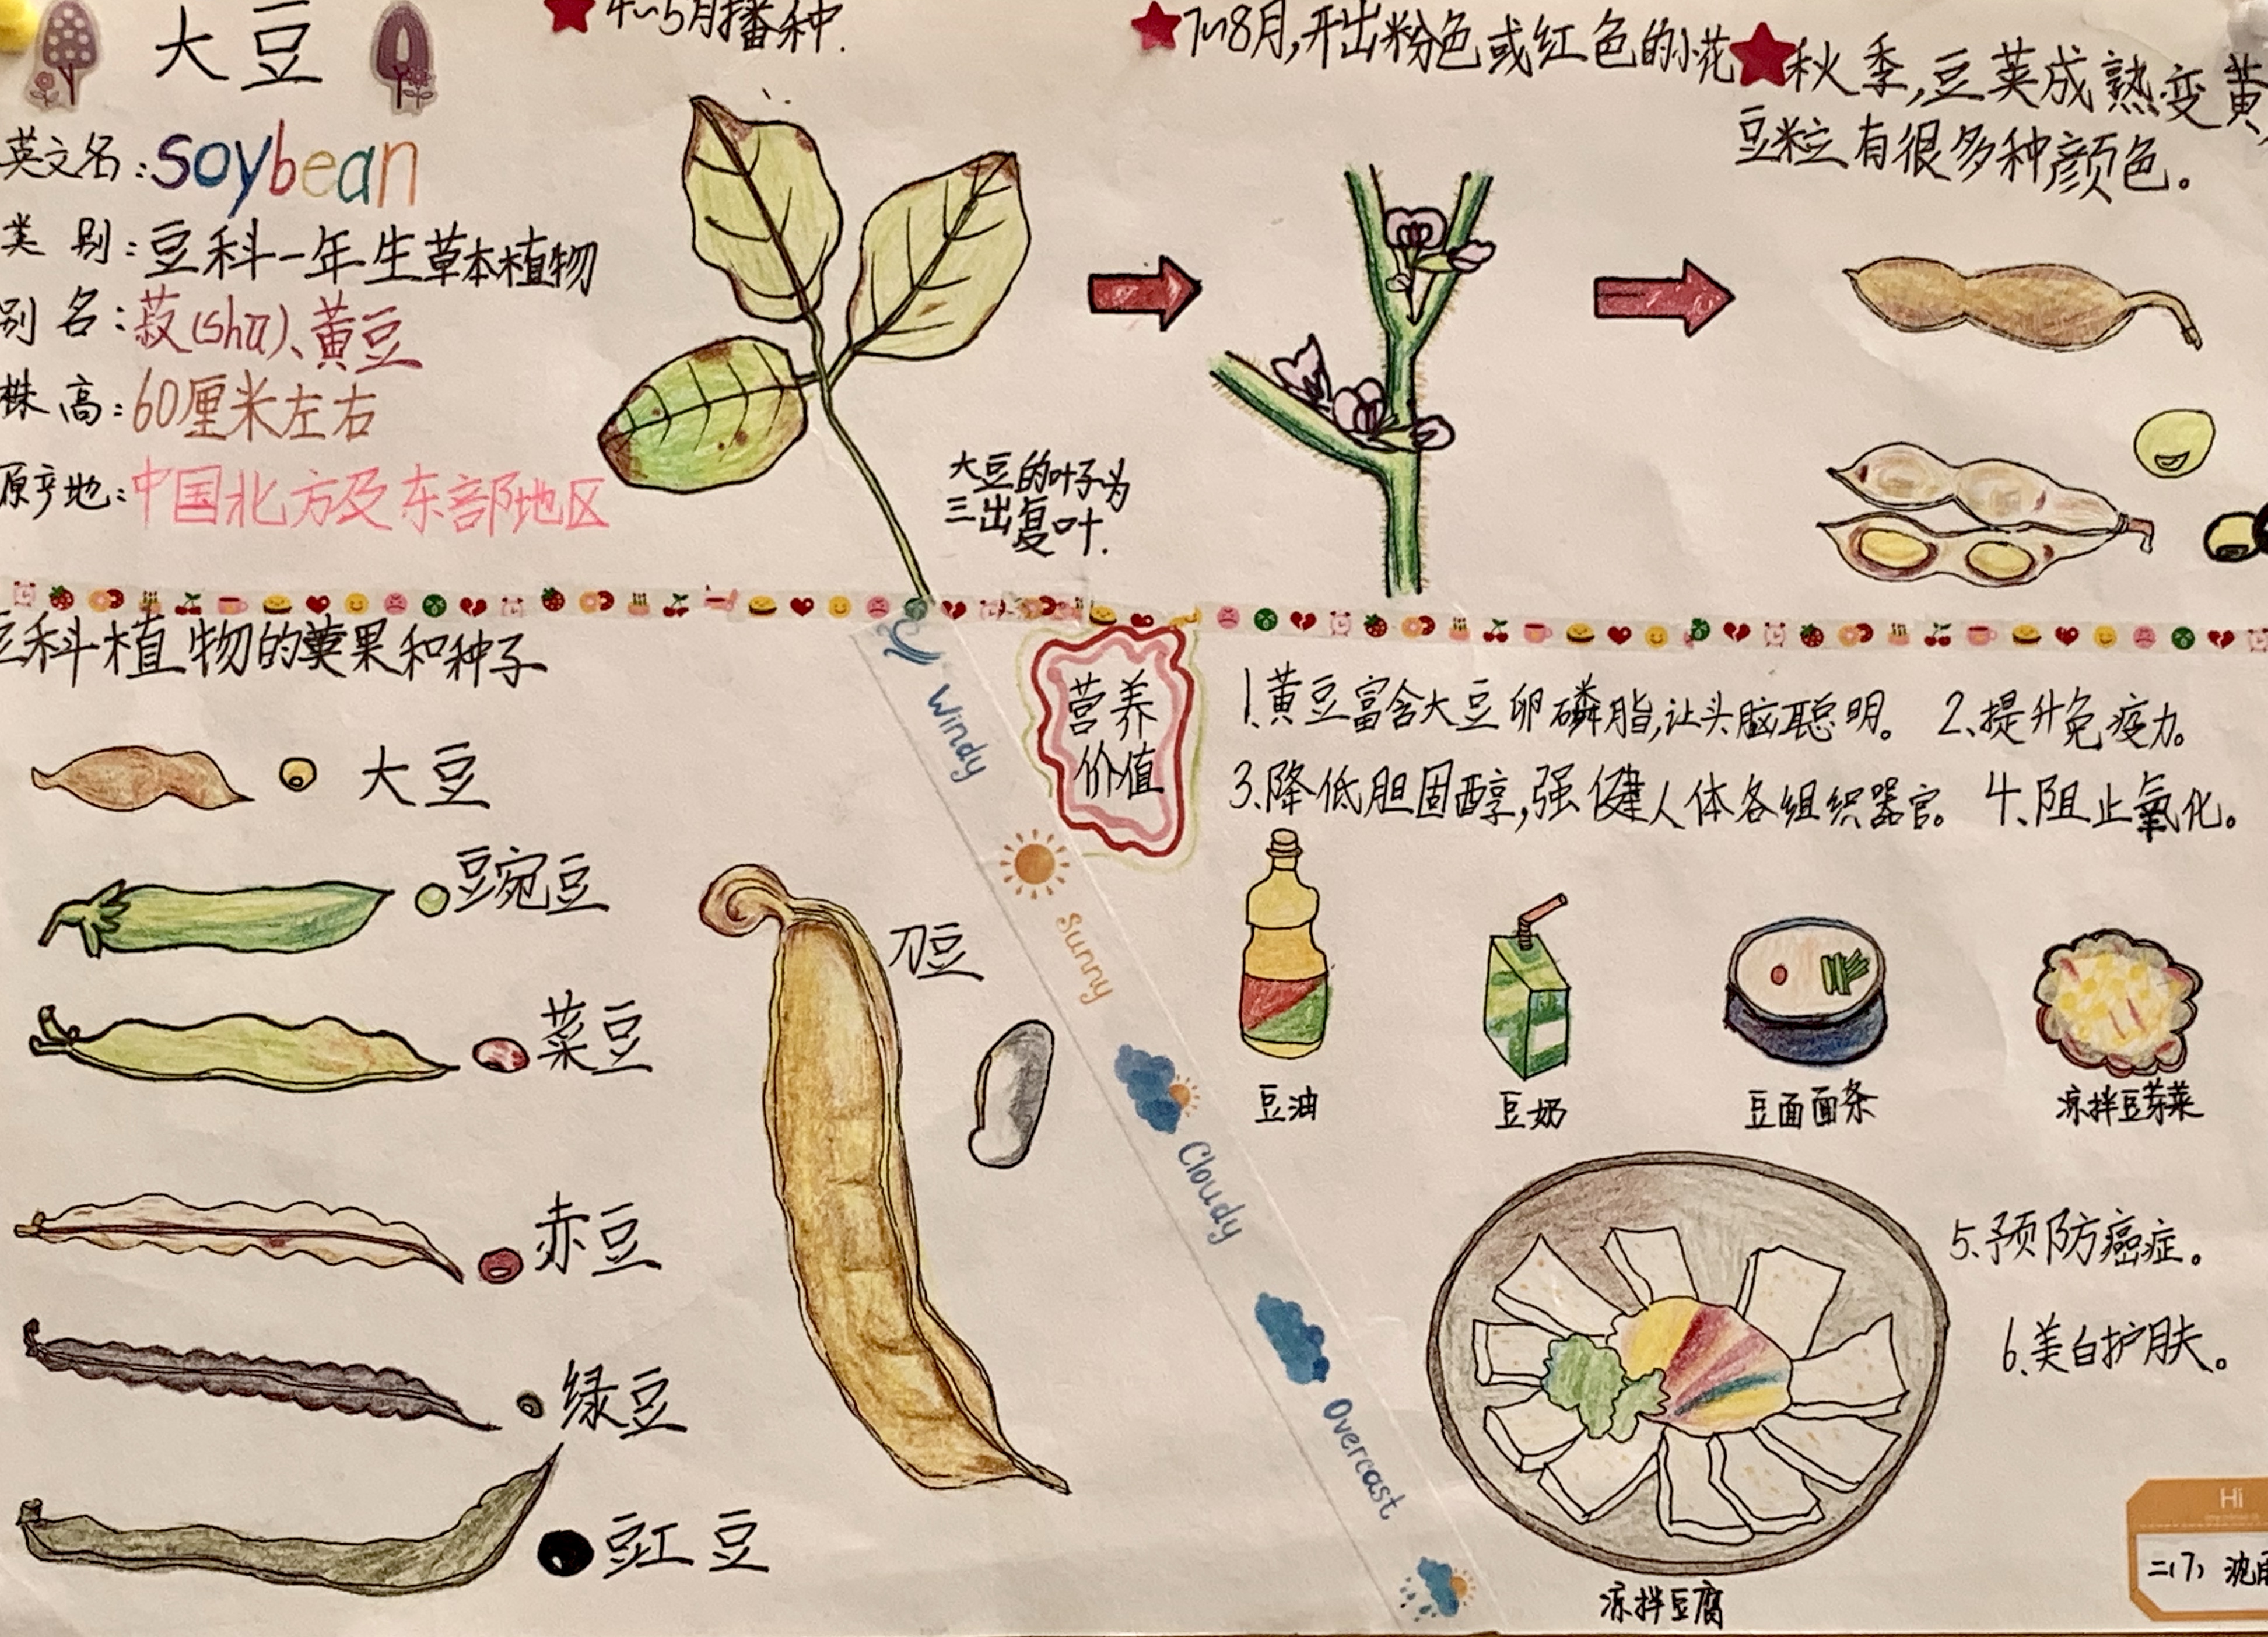 大豆
英文名:soybean
类 别:豆科一年生草本植物
别 名:菽(shū)、黄豆
株 高:60厘米左右
原产地:中国北方及东部地区
4~5月播种.
大豆的叶子为
三出复叶.
7~8月,开出粉色或红色的小花
秋季,豆荚成熟变黄,
豆粒有很多种颜色。
豆科植物的荚果和种子
大豆
豌豆
菜豆
赤豆
绿豆
豇豆
刀豆
Windy
Sunny
Cloudy
Overcast
营养
价值
1.黄豆富含大豆卵磷脂,让头脑聪明。 2.提升免疫力。
3.降低胆固醇,强健人体各组织器官。 4.阻止氧化。
豆油
豆奶
豆面面条
凉拌豆芽菜
5.预防癌症。
6.美白护肤。
凉拌豆腐
Hi
二(7) 沈